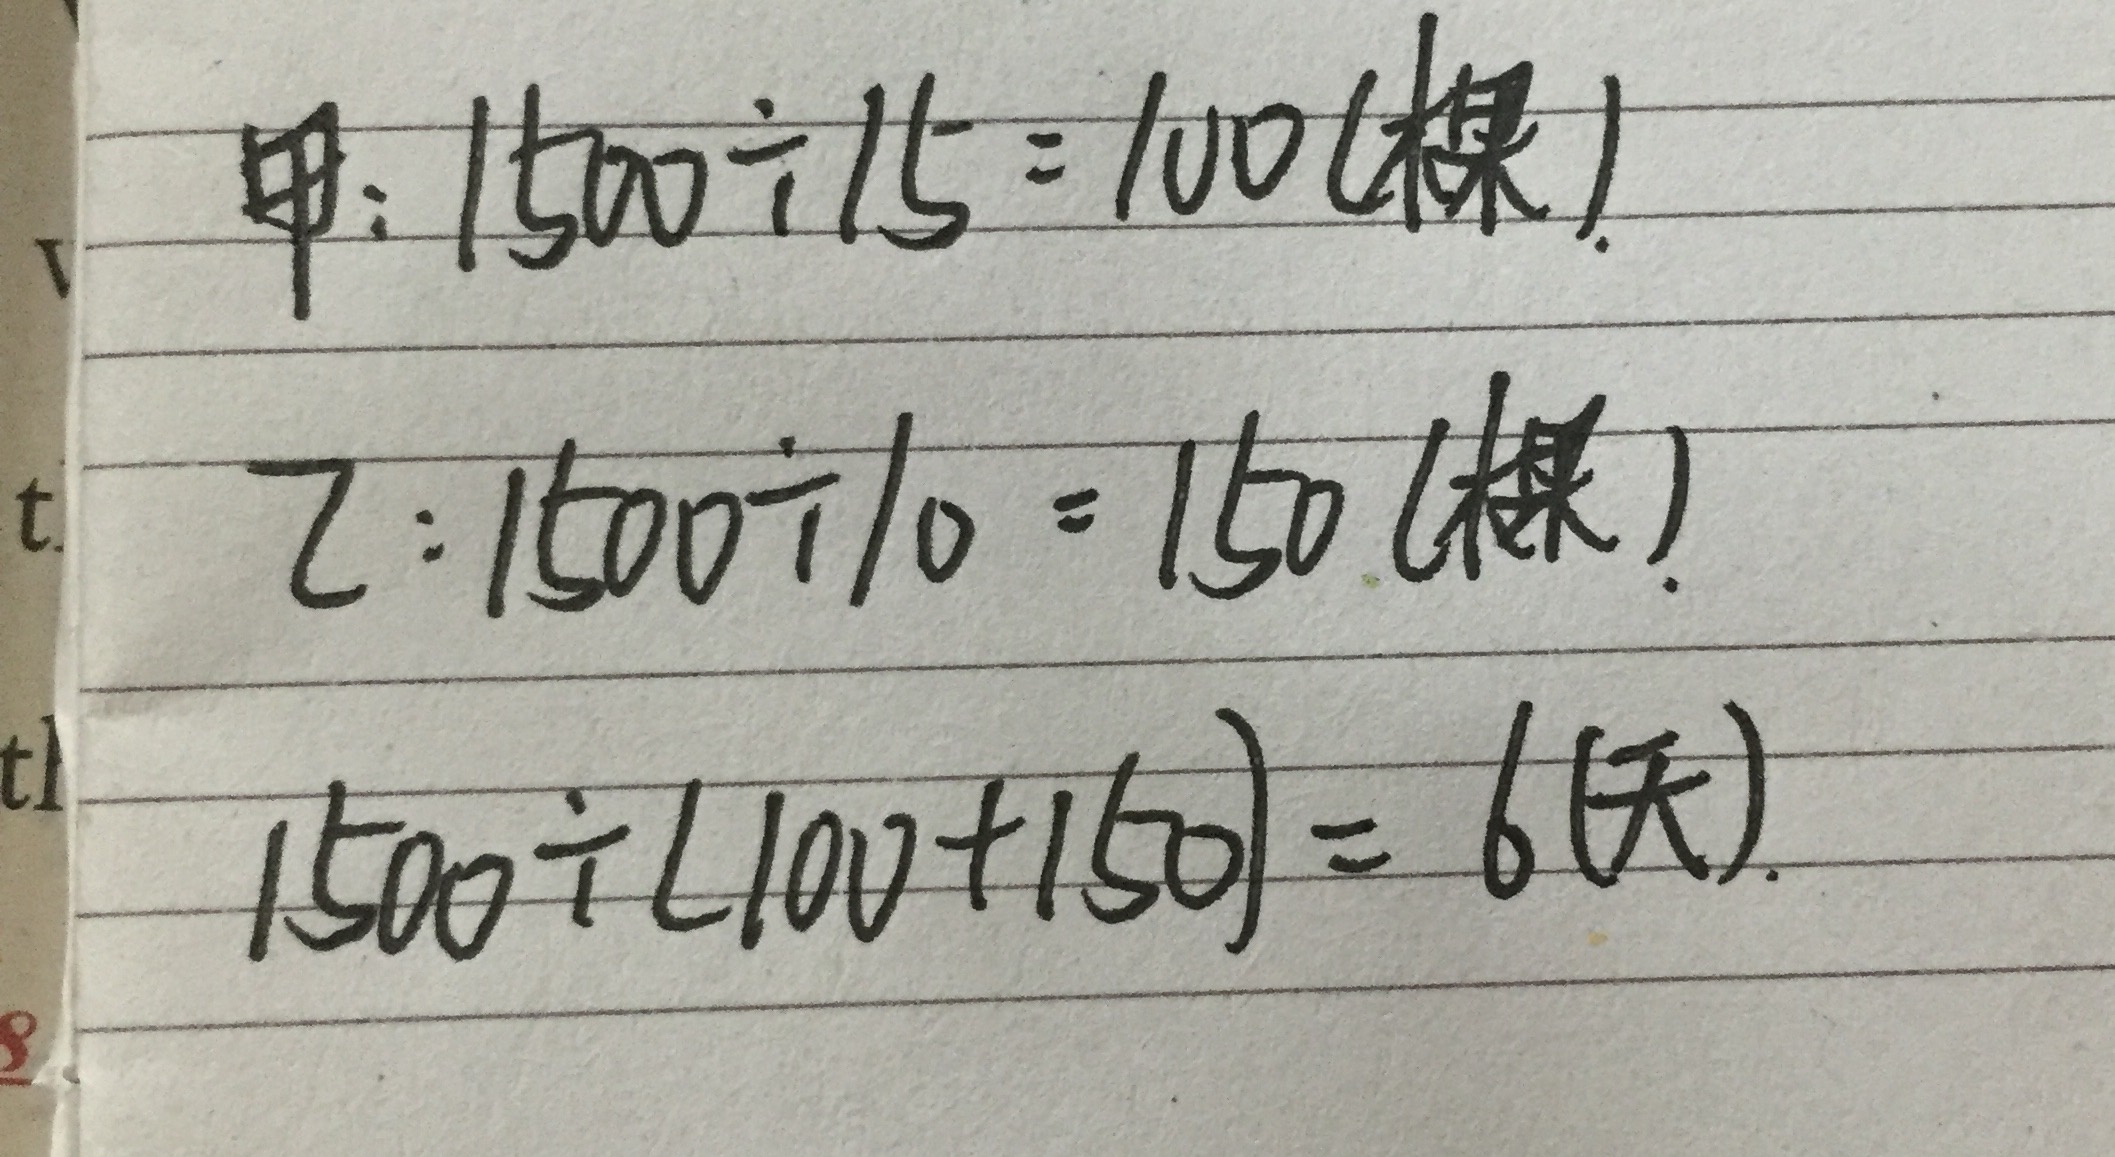 甲：1500÷15=100(棵).
乙：1500÷10=150(棵).
1500÷(100+150)=6(天).
t
th
8